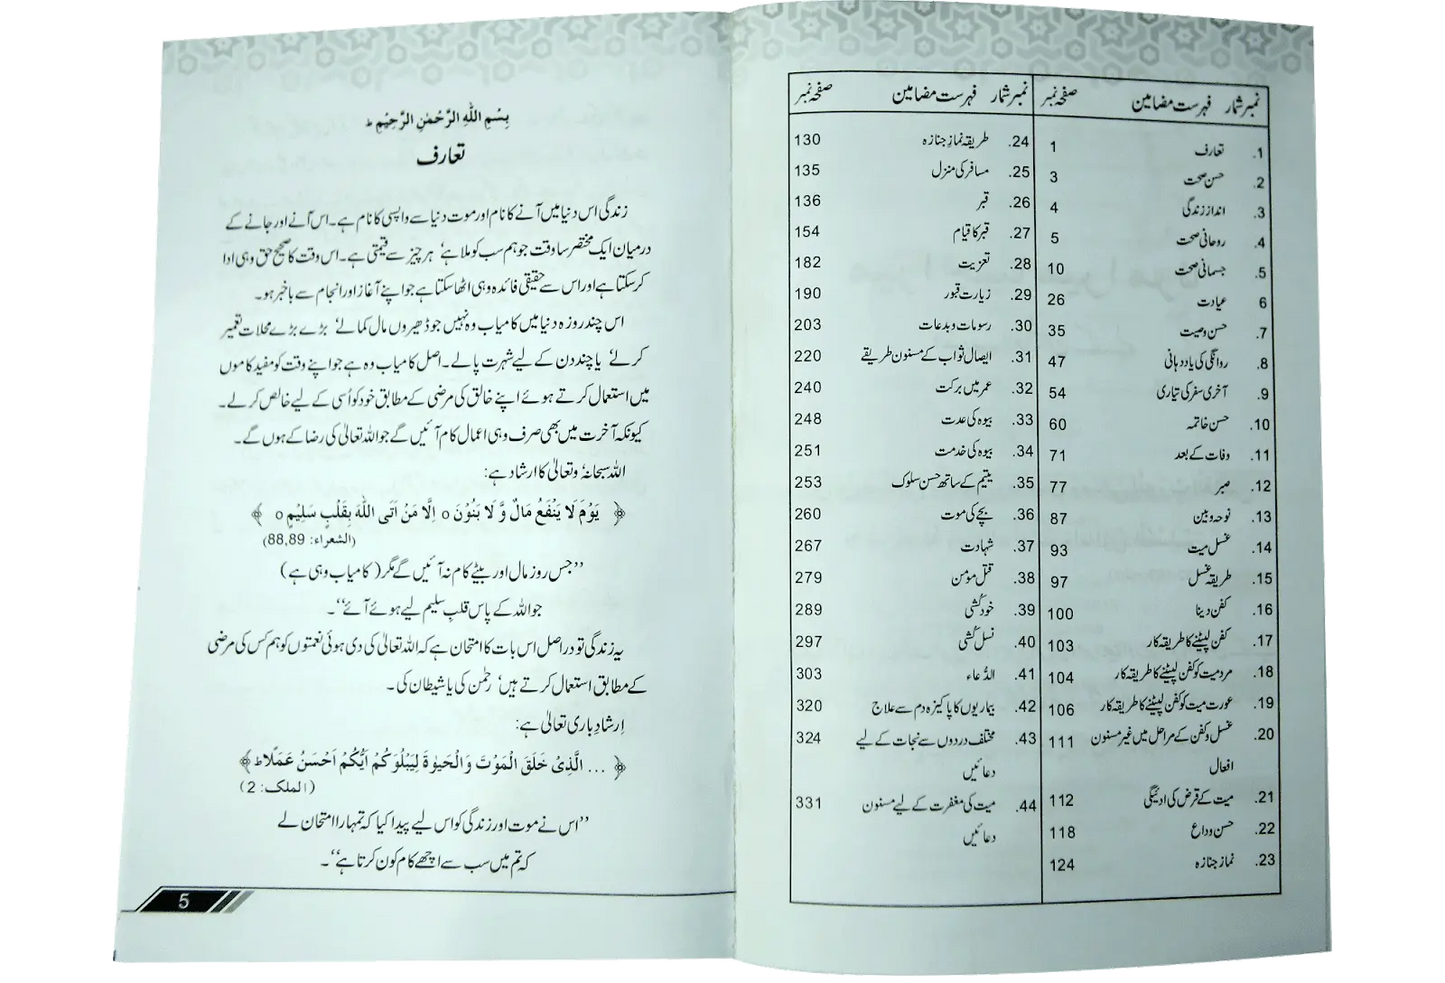 نمبر شمار فہرست مضامین صفحہ نمبر
1. تعارف 1
2. حسن صحت 3
3. انداز زندگی 4
4. روحانی صحت 5
5. جسمانی صحت 10
6 عیادت 26
7. حسن وصیت 35
8. روانگی کی یاد دہانی 47
9. آخری سفر کی تیاری 54
10. حسن خاتمہ 60
11. وفات کے بعد 71
12. صبر 77
13. نوحہ و بین 87
14. غسل میت 93
15. طریقہ غسل 97
16. کفن دینا 100
17. کفن لپیٹنے کا طریقہ کار 103
18. مرد میت کو کفن لپیٹنے کا طریقہ کار 104
19. عورت میت کو کفن لپیٹنے کا طریقہ کار 106
20. غسل و کفن کے مراحل میں غیر مسنون 111
افعال
21. میت کے قرض کی ادائیگی 112
22. حسن وداع 118
23. نماز جنازہ 124
نمبر شمار فہرست مضامین صفحہ نمبر
24. طریقہ نماز جنازہ 130
25. مسافر کی منزل 135
26. قبر 136
27. قبر کا قیام 154
28. تعزیت 182
29. زیارت قبور 190
30. رسومات و بدعات 203
31. ایصال ثواب کے مسنون طریقے 220
32. عمر میں برکت 240
33. بیوہ کی عدت 248
34. بیوہ کی خدمت 251
35. یتیم کے ساتھ حسن سلوک 253
36. بچے کی موت 260
37. شہادت 267
38. قتل مومن 279
39. خودکُشی 289
40. نسل کُشی 297
41. الدُّعاء 303
42. بیماریوں کا پاکیزہ دم سے علاج 320
43. مختلف دردوں سے نجات کے لیے 324
دعائیں
44. میت کی مغفرت کے لیے مسنون 331
دعائیں
بِسْمِ اللّٰهِ الرَّحْمٰنِ الرَّحِيْمِ ط
تعارف
زندگی اس دنیا میں آنے کا نام اور موت دنیا سے واپسی کا نام ہے۔ اس آنے اور جانے کے
درمیان ایک مختصر سا وقت جو ہم سب کو ملا ہے‘ ہر چیز سے قیمتی ہے۔ اس وقت کا صحیح حق وہی ادا
کر سکتا ہے اور اس سے حقیقی فائدہ وہی اٹھا سکتا ہے جو اپنے آغاز اور انجام سے باخبر ہو۔
اس چند روزہ دنیا میں کامیاب وہ نہیں جو ڈھیروں مال کما لے‘ بڑے بڑے محلات تعمیر
کر لے‘ یا چند دن کے لیے شہرت پا لے۔ اصل کامیاب وہ ہے جو اپنے وقت کو مفید کاموں
میں استعمال کرتے ہوئے اپنے خالق کی مرضی کے مطابق خود کو اُسی کے لیے خالص کر لے۔
کیونکہ آخرت میں بھی صرف وہی اعمال کام آئیں گے جو اللہ تعالیٰ کی رضا کے ہوں گے۔
اللہ سبحانہٗ وتعالیٰ کا ارشاد ہے:
﴿ يَوْمَ لَا يَنْفَعُ مَالٌ وَّ لَا بَنُوْنَ o اِلَّا مَنْ اَتَى اللّٰهَ بِقَلْبٍ سَلِيْمٍ o ﴾
(الشعراء: 88,89)
’’جس روز مال اور بیٹے کام نہ آئیں گے مگر (کامیاب وہی ہے)
جو اللہ کے پاس قلبِ سلیم لیے ہوئے آئے‘‘۔
یہ زندگی تو دراصل اس بات کا امتحان ہے کہ اللہ تعالیٰ کی دی ہوئی نعمتوں کو ہم کس کی مرضی
کے مطابق استعمال کرتے ہیں‘ رحمٰن کی یا شیطان کی۔
اِرشادِ باری تعالیٰ ہے:
﴿ ... الَّذِىْ خَلَقَ الْمَوْتَ وَالْحَيٰوةَ لِيَبْلُوَكُمْ اَيُّكُمْ اَحْسَنُ عَمَلًا ط ﴾
(الملک: 2)
’’اس نے موت اور زندگی کو اس لیے پیدا کیا کہ تمہارا امتحان لے
کہ تم میں سب سے اچھے کام کون کرتا ہے‘‘۔
5